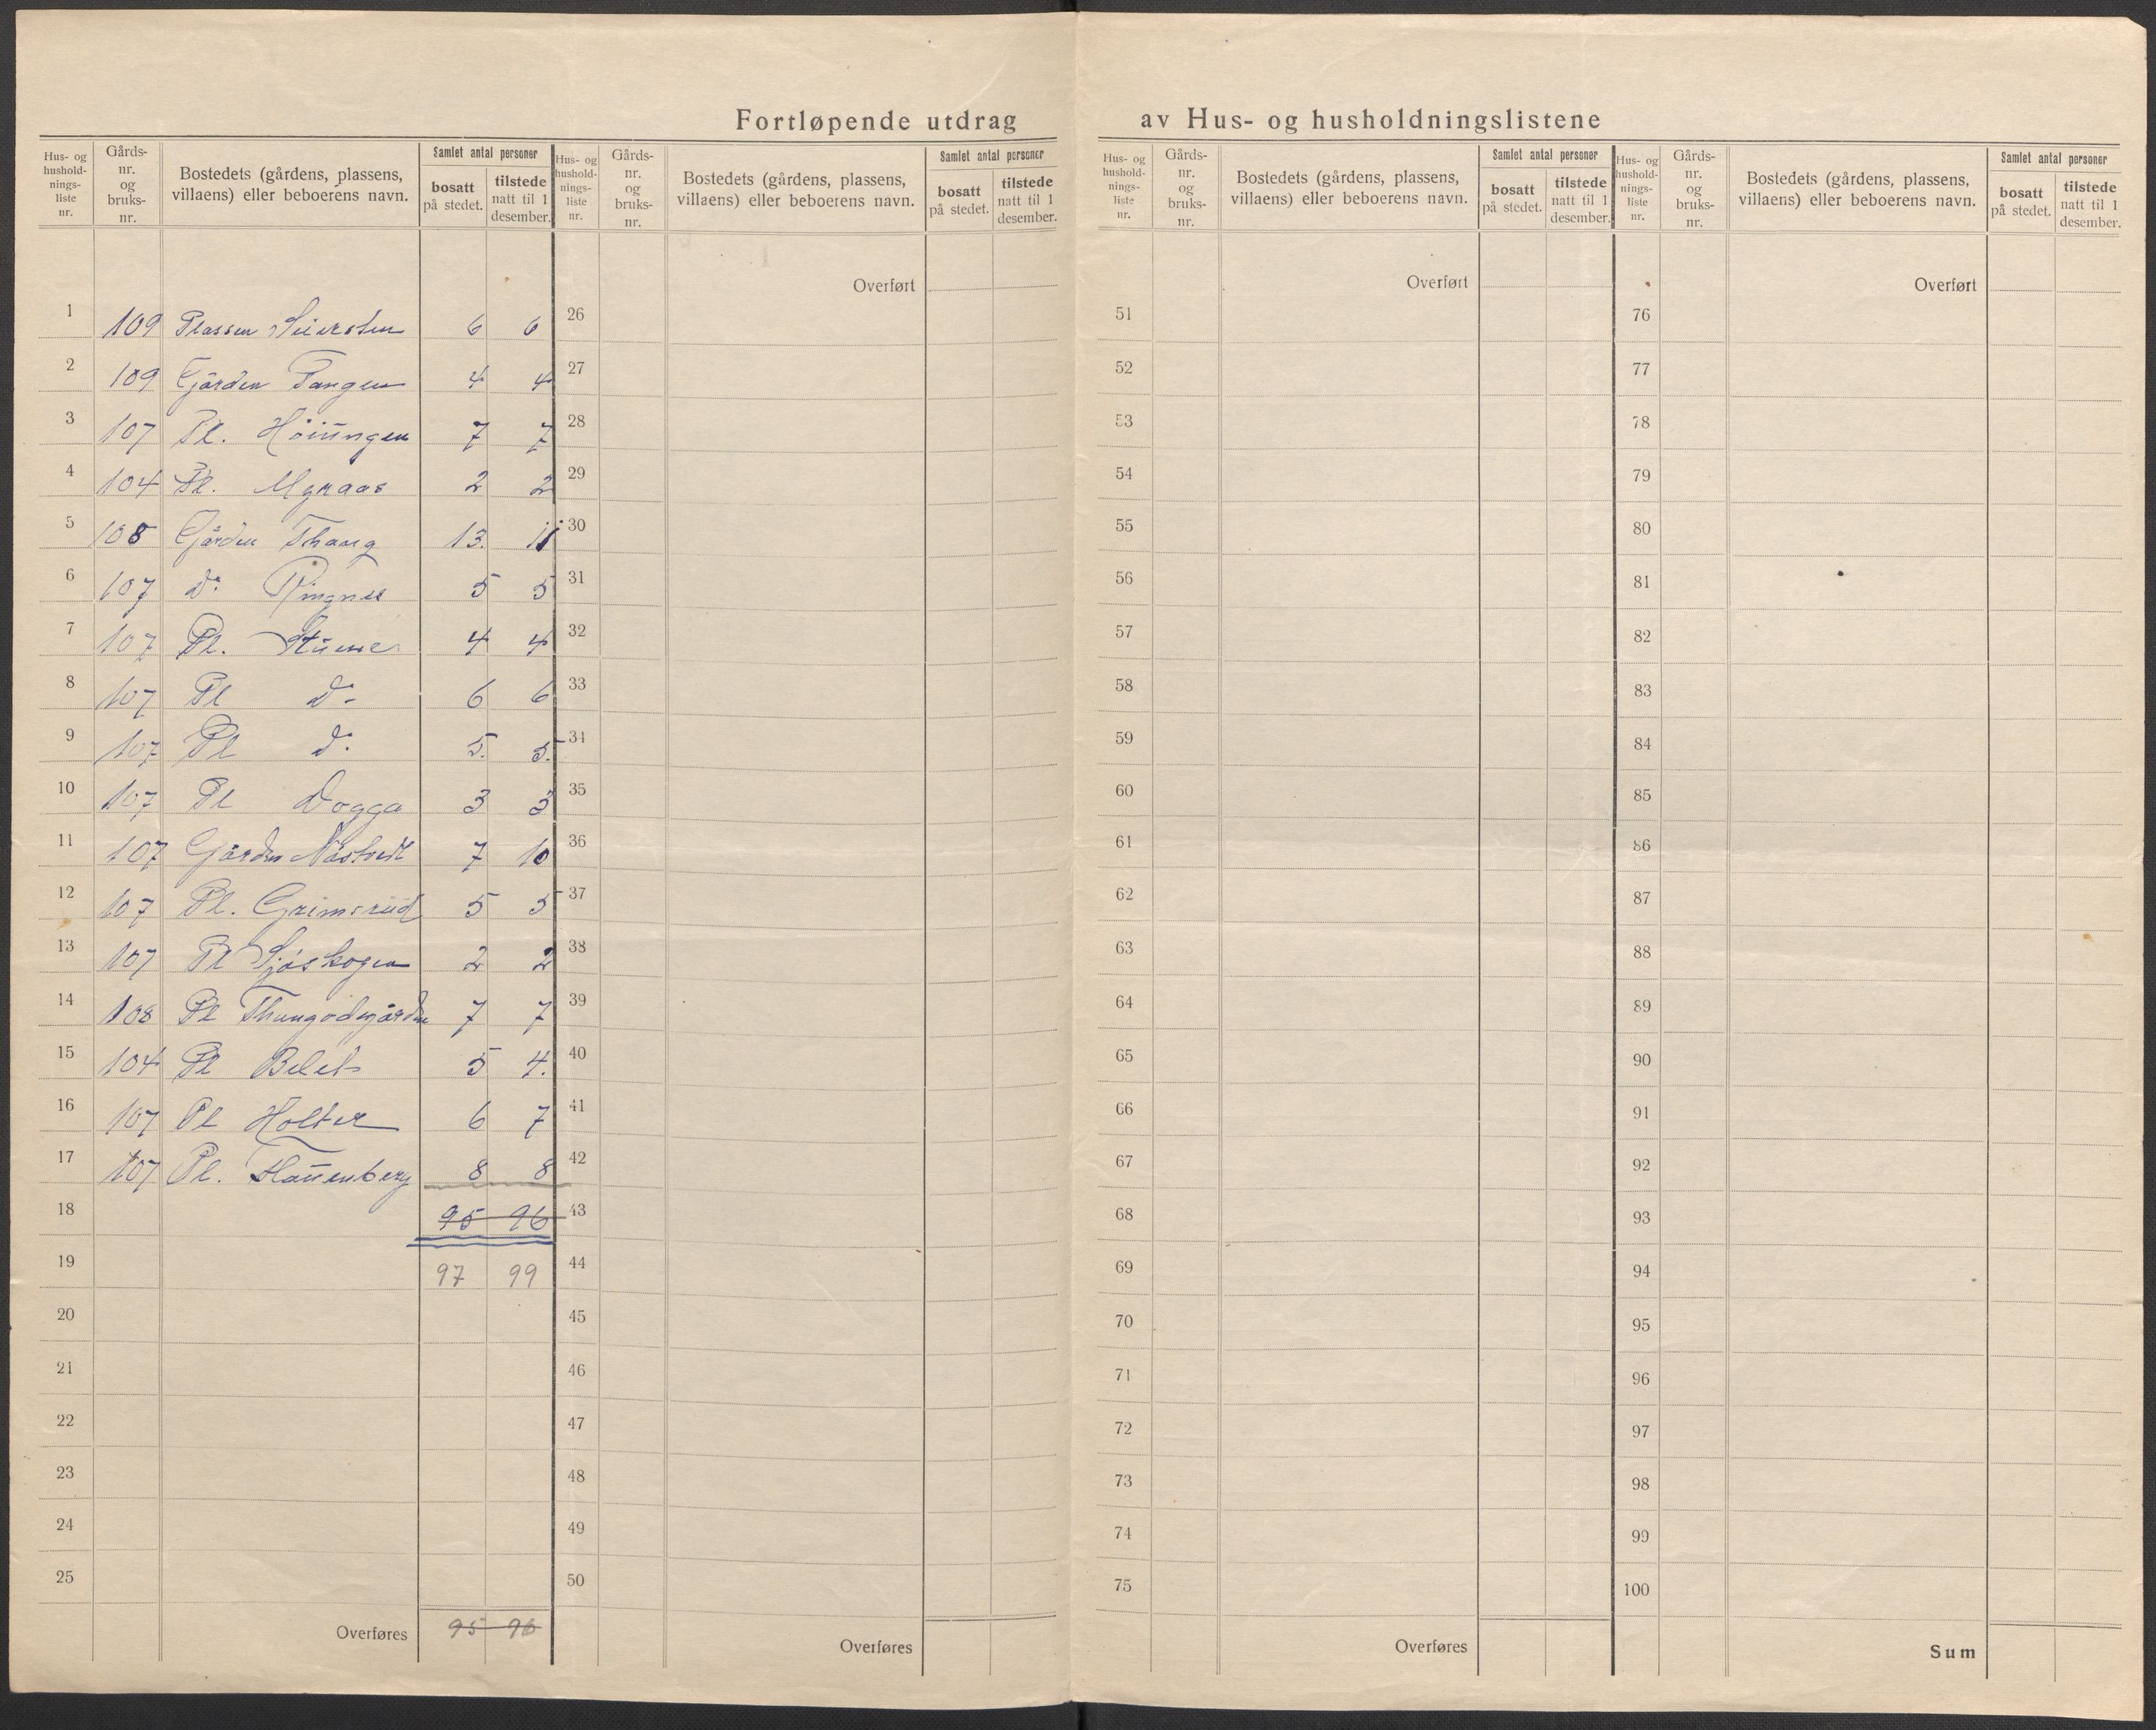 Fortløpende utdrag av Hus- og husholdningslistene
Hus- og hushold-nings-liste nr. Gårds-nr. og bruks-nr. Bostedets (gårdens, plassens, villaens) eller beboerens navn. Samlet antal personer bosatt på stedet. tilstede natt til 1 desember.
Hus- og hushold-nings-liste nr. Gårds-nr. og bruks-nr. Bostedets (gårdens, plassens, villaens) eller beboerens navn. Samlet antal personer bosatt på stedet. tilstede natt til 1 desember.
Hus- og hushold-nings-liste nr. Gårds-nr. og bruks-nr. Bostedets (gårdens, plassens, villaens) eller beboerens navn. Samlet antal personer bosatt på stedet. tilstede natt til 1 desember.
Hus- og hushold-nings-liste nr. Gårds-nr. og bruks-nr. Bostedets (gårdens, plassens, villaens) eller beboerens navn. Samlet antal personer bosatt på stedet. tilstede natt til 1 desember.
1 109 Plassen 6 6
2 109 Gården Tangen 4 4
3 107 Pl. 7 7
4 104 Pl. Mgraas 2 2
5 108 Gården 13. 11
6 107 do Ringnes 5 5
7 107 Pl. 4 4
8 107 Pl do 6 6
9 107 Pl do 5. 5.
10 107 Pl Dogga 3 3
11 107 Gården 7 10
12 107 Pl. Grimsrud 5 5
13 107 Pl Sjøskogen 2 2
14 108 Pl 7 7
15 104 Pl 5 4.
16 107 Pl Holter 6 7
17 107 Pl. 8 8
18 95 96
19 97 99
20
21
22
23
24
25
Overføres 95 96
Overført
26
27
28
29
30
31
32
33
34
35
36
37
38
39
40
41
42
43
44
45
46
47
48
49
50
Overføres
Overført
51
52
53
54
55
56
57
58
59
60
61
62
63
64
65
66
67
68
69
70
71
72
73
74
75
Overføres
Overført
76
77
78
79
80
81
82
83
84
85
86
87
88
89
90
91
92
93
94
95
96
97
98
99
100
Sum